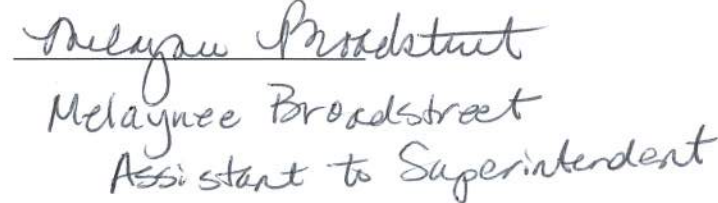 Melaynee Broadstreet
Melaynee Broadstreet
Assistant to Superintendent